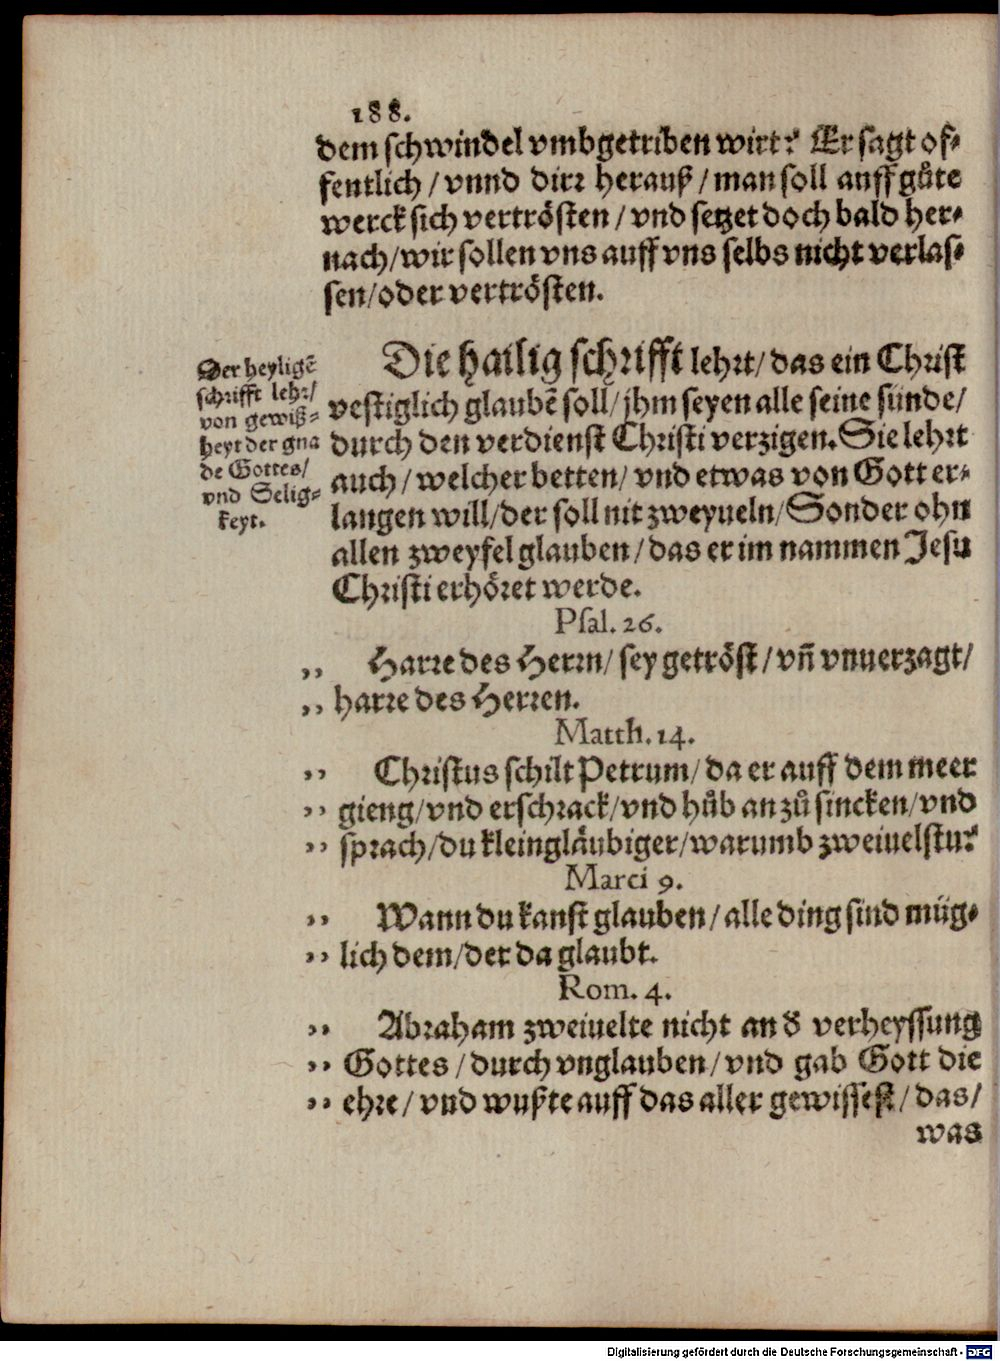 188.
dem schwindel vmbgetriben wirt? Er sagt of-
fentlich / vnnd dirr herauß / man soll auff gůte
werck sich vertrösten / vnd setzet doch bald her-
nach / wir sollen vns auff vns selbs nicht verlas-
sen / oder vertrösten.
Der heyligē
schrifft lehr/
von gewiß-
heyt der gna
de Gottes/
vnd Selig-
keyt.
Die hailig schrifft lehrt / das ein Christ
vestiglich glaubē soll / jhm seyen alle seine sünde /
durch den verdienst Christi verzigen. Sie lehrt
auch / welcher betten / vnd etwas von Gott er-
langen will / der soll nit zweyueln / Sonder ohn
allen zweyfel glauben / das er im nammen Jesu
Christi erhöret werde.
Psal. 26.
,, Harre des Herrn / sey getröst / vñ vnuerzagt /
,, harre des Herren.
Matth. 14.
,, Christus schilt Petrum / da er auff dem meer
,, gieng / vnd erschrack / vnd hůb an zů sincken / vnd
,, sprach / du kleingläubiger / warumb zweiuelstu?
Marci 9.
,, Wann du kanst glauben / alle ding sind müg-
,, lich dem / der da glaubt.
Rom. 4.
,, Abraham zweiuelte nicht an d verheyssung
,, Gottes / durch vnglauben / vnd gab Gott die
,, ehre / vnd wußte auff das aller gewissest / das /
was
Digitalisierung gefördert durch die Deutsche Forschungsgemeinschaft - DFG